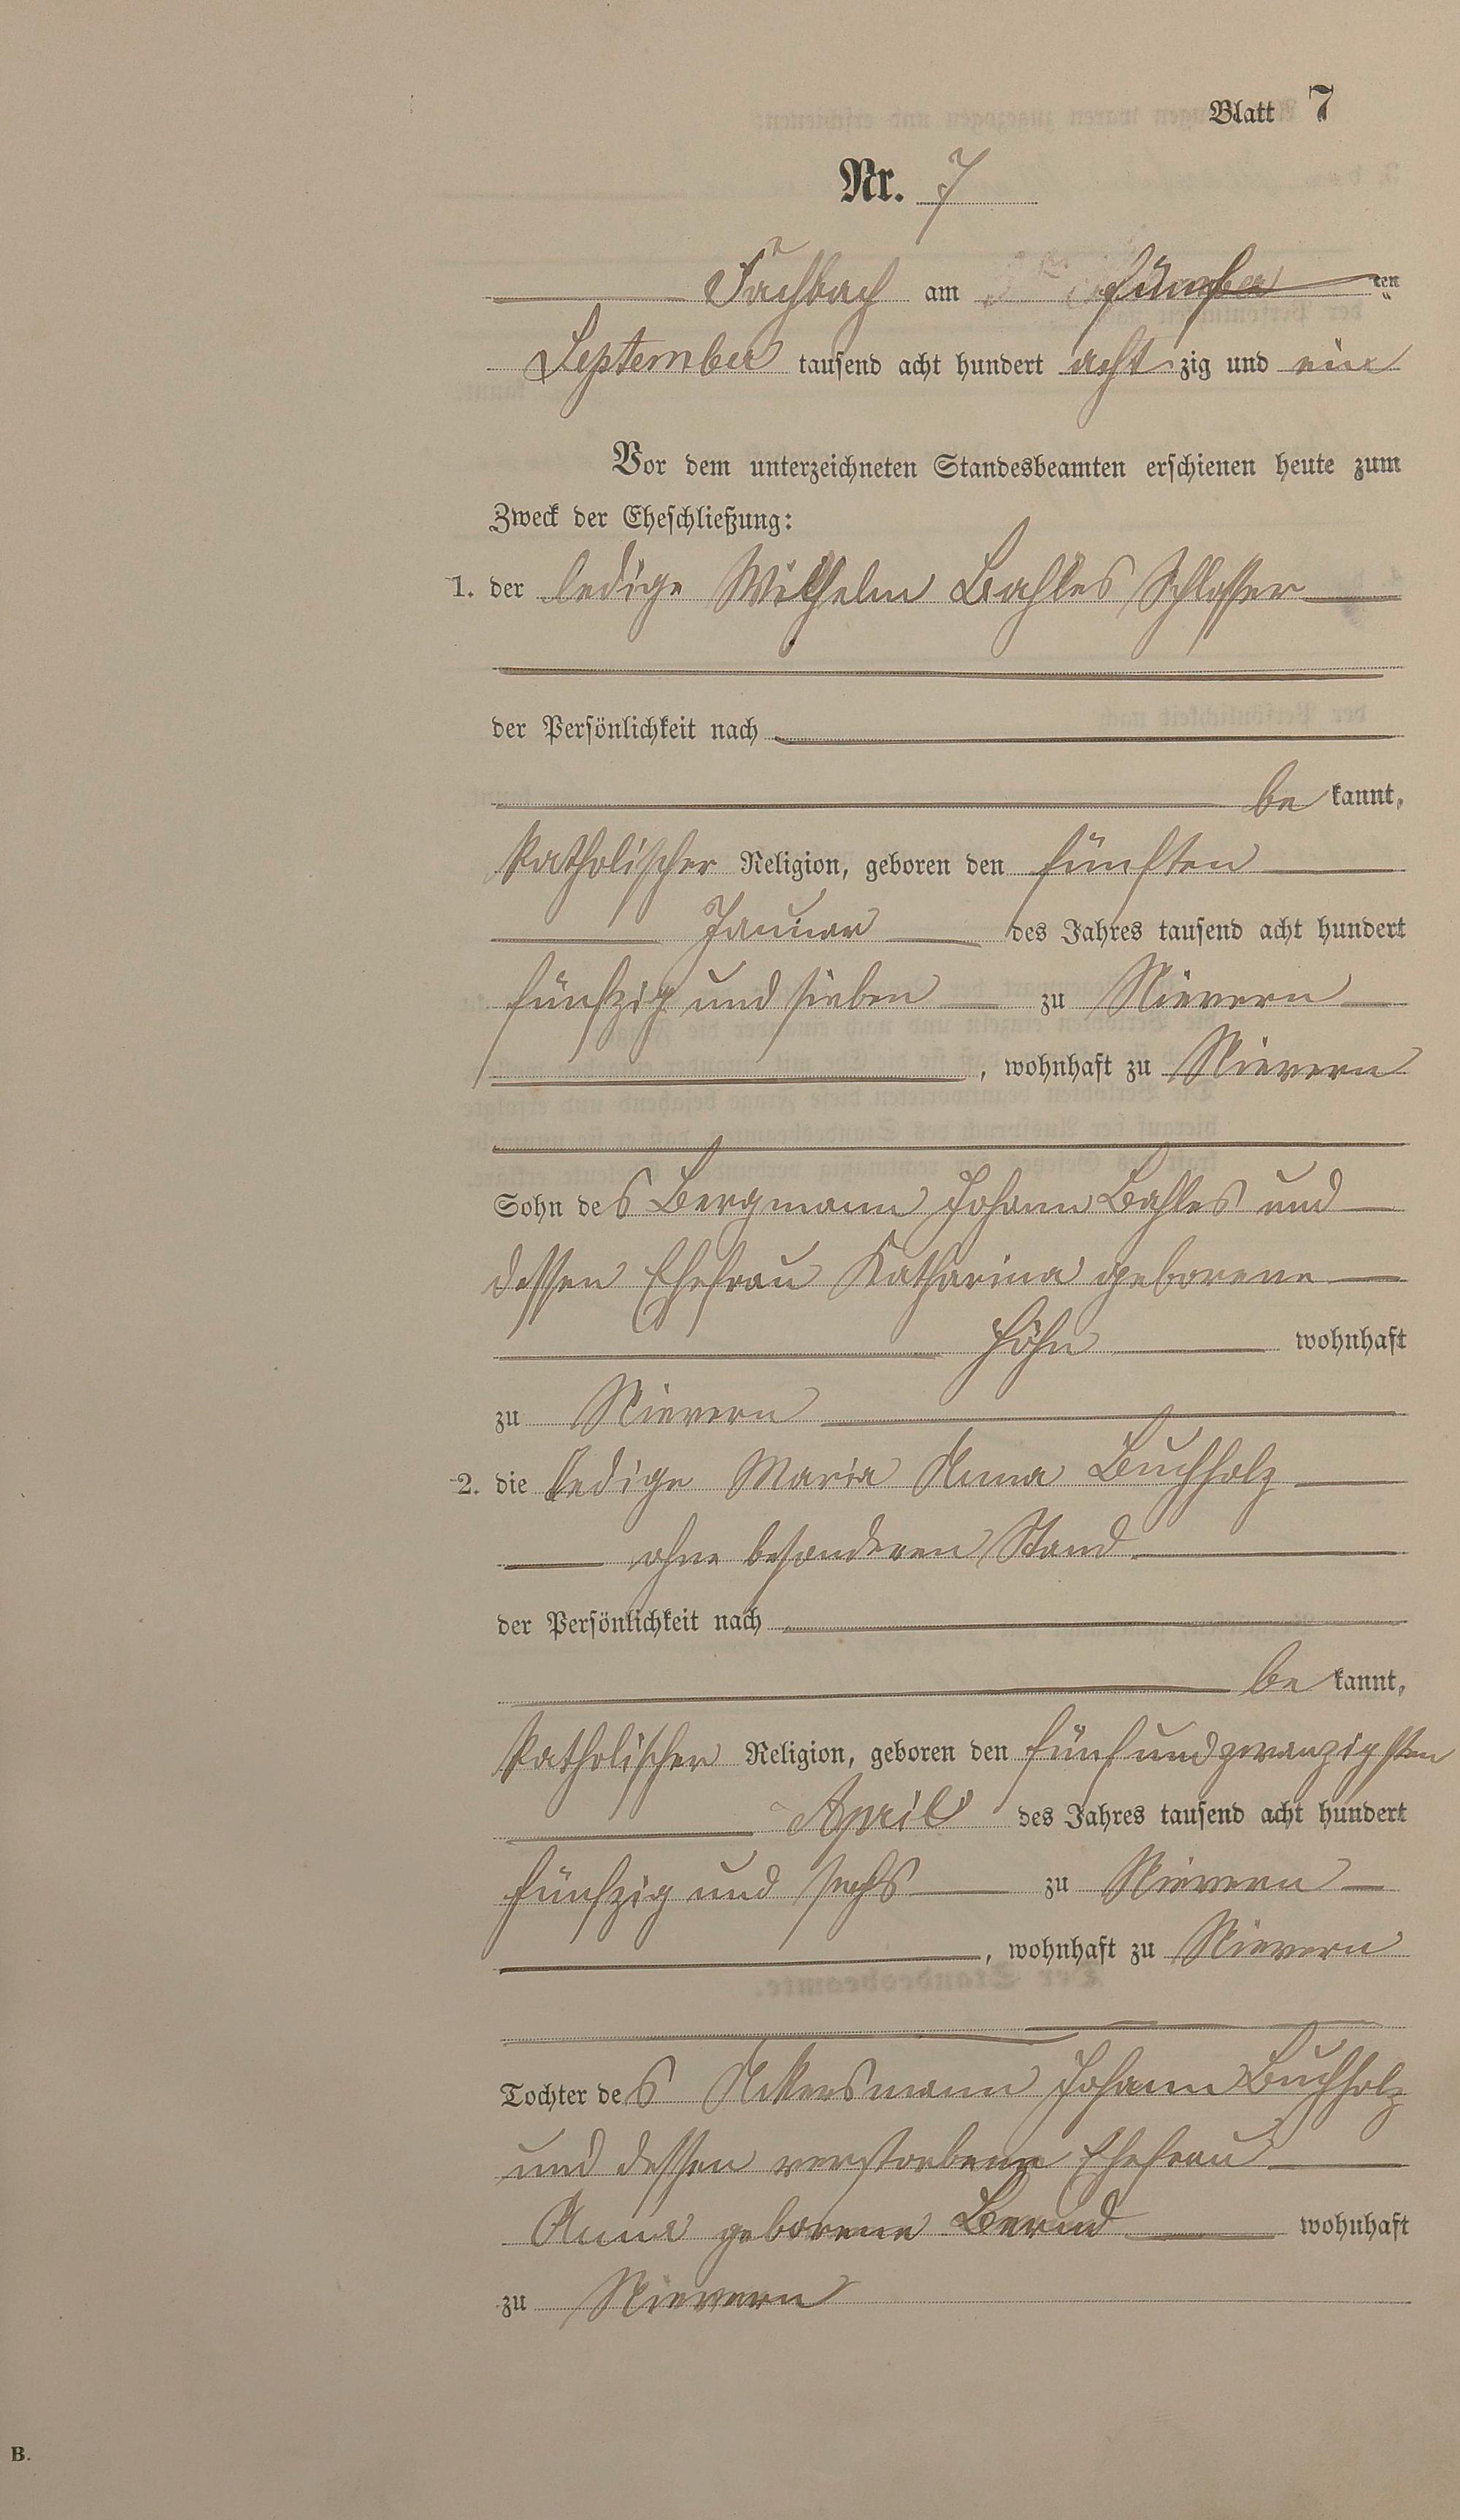 Blatt 7
Nr. 7
Fachbach am ten
September tausend acht hundert acht zig und ein
Vor dem unterzeichneten Standesbeamten erschienen heute zum
Zweck der Eheschließung:
1. der ledige Wilhelm Bahles Schlosser
der Persönlichkeit nach
be kannt,
katholischer Religion, geboren den fünften
Januar des Jahres tausend acht hundert
fünfzig und sieben zu Nievern
, wohnhaft zu Nievern
Sohn des Bergmann Johann Bahles und
dessen Ehefrau Katharina geborene
Höhn wohnhaft
zu Nievern
2. die ledige Maria Anna Buchholz
ohne besonderen Stand
der Persönlichkeit nach
be kannt,
katholischer Religion, geboren den fünfundzwanzigsten
April des Jahres tausend acht hundert
fünfzig und sechs zu Nievern
, wohnhaft zu Nievern
Tochter des Akersmann Johann Buchholz
und dessen verstorbene Ehefrau
Anna geborene Bernd wohnhaft
zu Nievern
B.